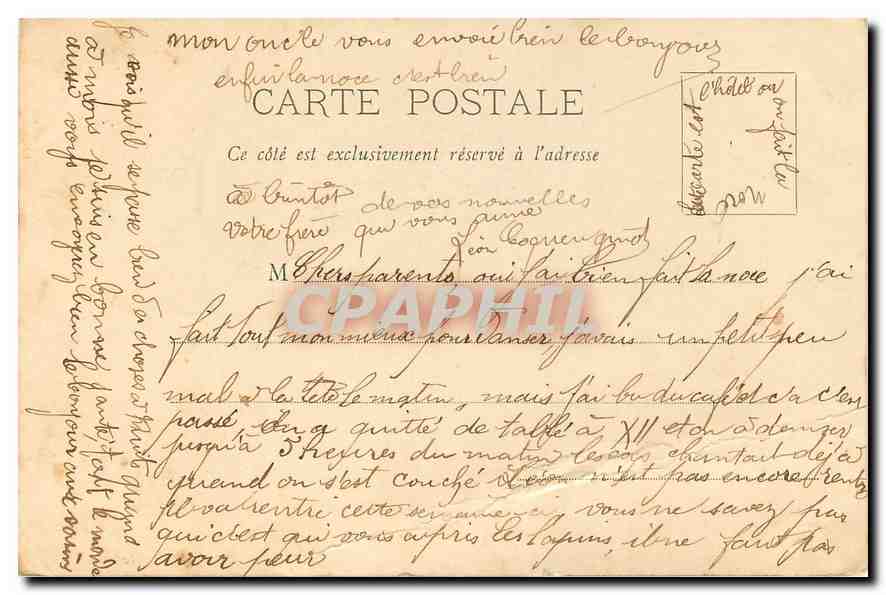 mon oncle vous envoie bien le bonjour
enfin la noce c'est bien
CARTE POSTALE
Ce côté est exclusivement réservé à l'adresse
carte est
l'hôtel ou
on fait la
noce
à bientôt de vos nouvelles
votre frère qui vous aime
Léon
M
Chers parents, oui j'ai bien fait la noce j'ai
fait tout mon mieux pour danser, j'avais un petit peu
mal à la tête le matin, mais j'ai bu du café et ça c'est
passé, on a quitté de table à XII et on a danser
jusqu'à 5 heures du matin les cois chantait déjà
quand on s'est couché Léon n'est pas encore rentré
il va rentré cette semaine ci, vous ne savez pas
qui c'est qui vous a pris les lapins, il ne faut pas
avoir peur
Je vois qu'il se passe bien des choses à quand
à mois je suis en bonne santé, tout le monde
aussi vous envoyez bien le bonjour aux
CPAPHIL